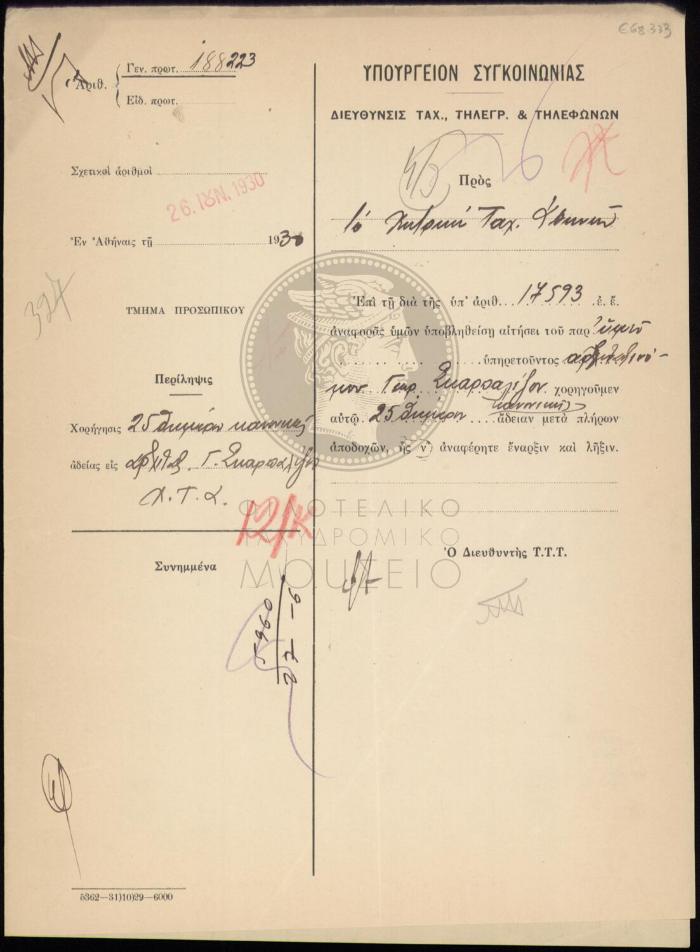 668333
Γεν. πρωτ. 188223
Ἀριθ.
Εἰδ. πρωτ.
Σχετικοὶ ἀριθμοὶ
26. ΙΟΥΝ. 1930
Ἐν Ἀθήναις τῇ 1930
327
ΤΜΗΜΑ ΠΡΟΣΩΠΙΚΟΥ
Περίληψις
Χορήγησις 25θημέρου κανονικῆς
ἀδείας εἰς ἀρχιταξ. Γ. Σκαρπαλέζον
Κ.Τ.Α.
12/κ
Συνημμένα
5960
27-6
δ362—31)10)29—6000
ΥΠΟΥΡΓΕΙΟΝ ΣΥΓΚΟΙΝΩΝΙΑΣ
ΔΙΕΥΘΥΝΣΙΣ ΤΑΧ., ΤΗΛΕΓΡ. & ΤΗΛΕΦΩΝΩΝ
Πρὸς
Τὸ Κεντρικὸν Ταχ. Ἀθηνῶν
Ἐπὶ τῇ διὰ τῆς ὑπ' ἀριθ. 17593 ἐ. ἔ.
ἀναφορᾶς ὑμῶν ὑποβληθείσῃ αἰτήσει τοῦ παρ' ὑμῖν
ὑπηρετοῦντος ἀρχιταξινό-
μου Γεωρ. Σκαρπαλέζου χορηγοῦμεν
αὐτῷ 25θήμερον κανονικὴν ἄδειαν μετὰ πλήρων
ἀποδοχῶν, ἧς ν' ἀναφέρητε ἔναρξιν καὶ λῆξιν.
Ὁ Διευθυντὴς Τ.Τ.Τ.
ΦΙΛΟΤΕΛΙΚΟ
ΤΑΧΥΔΡΟΜΙΚΟ
ΜΟΥΣΕΙΟ